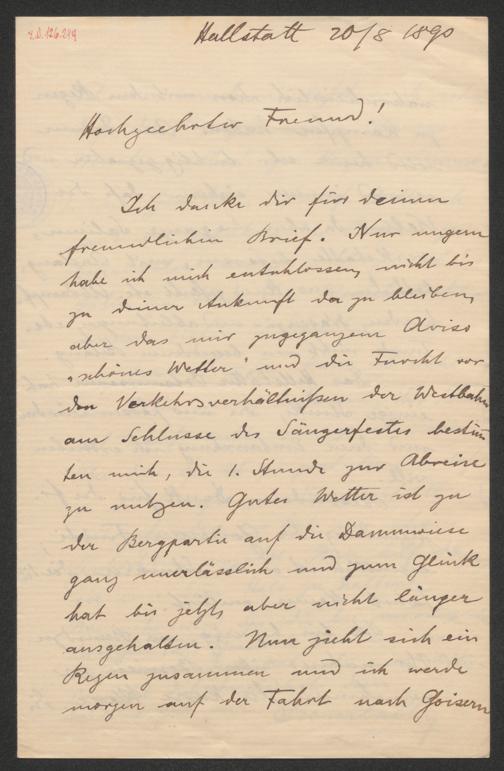 I.N. 126.219
Hallstatt 20/8 1890
Hochgeehrter Freund!
Ich danke dir für deinen
freundlichen Brief. Nur ungern
habe ich mich entschlossen, nicht bis
zu deiner Ankunft da zu bleiben,
aber das mir zugegangene Aviso
„schönes Wetter" und die Furcht vor
den Verkehrsverhältnißen der Westbahn
am Schlusse des Sängerfestes bestim̅
ten mich, die 1. Stunde zur Abreise
zu nutzen. Gutes Wetter ist zu
der Bergpartie auf die Dammwiese
ganz unerlässlich und zum Glück
hat bis jetzt aber nicht länger
ausgehalten. Nun zieht sich ein
Regen zusammen und ich werde
morgen auf der Fahrt nach Goisern